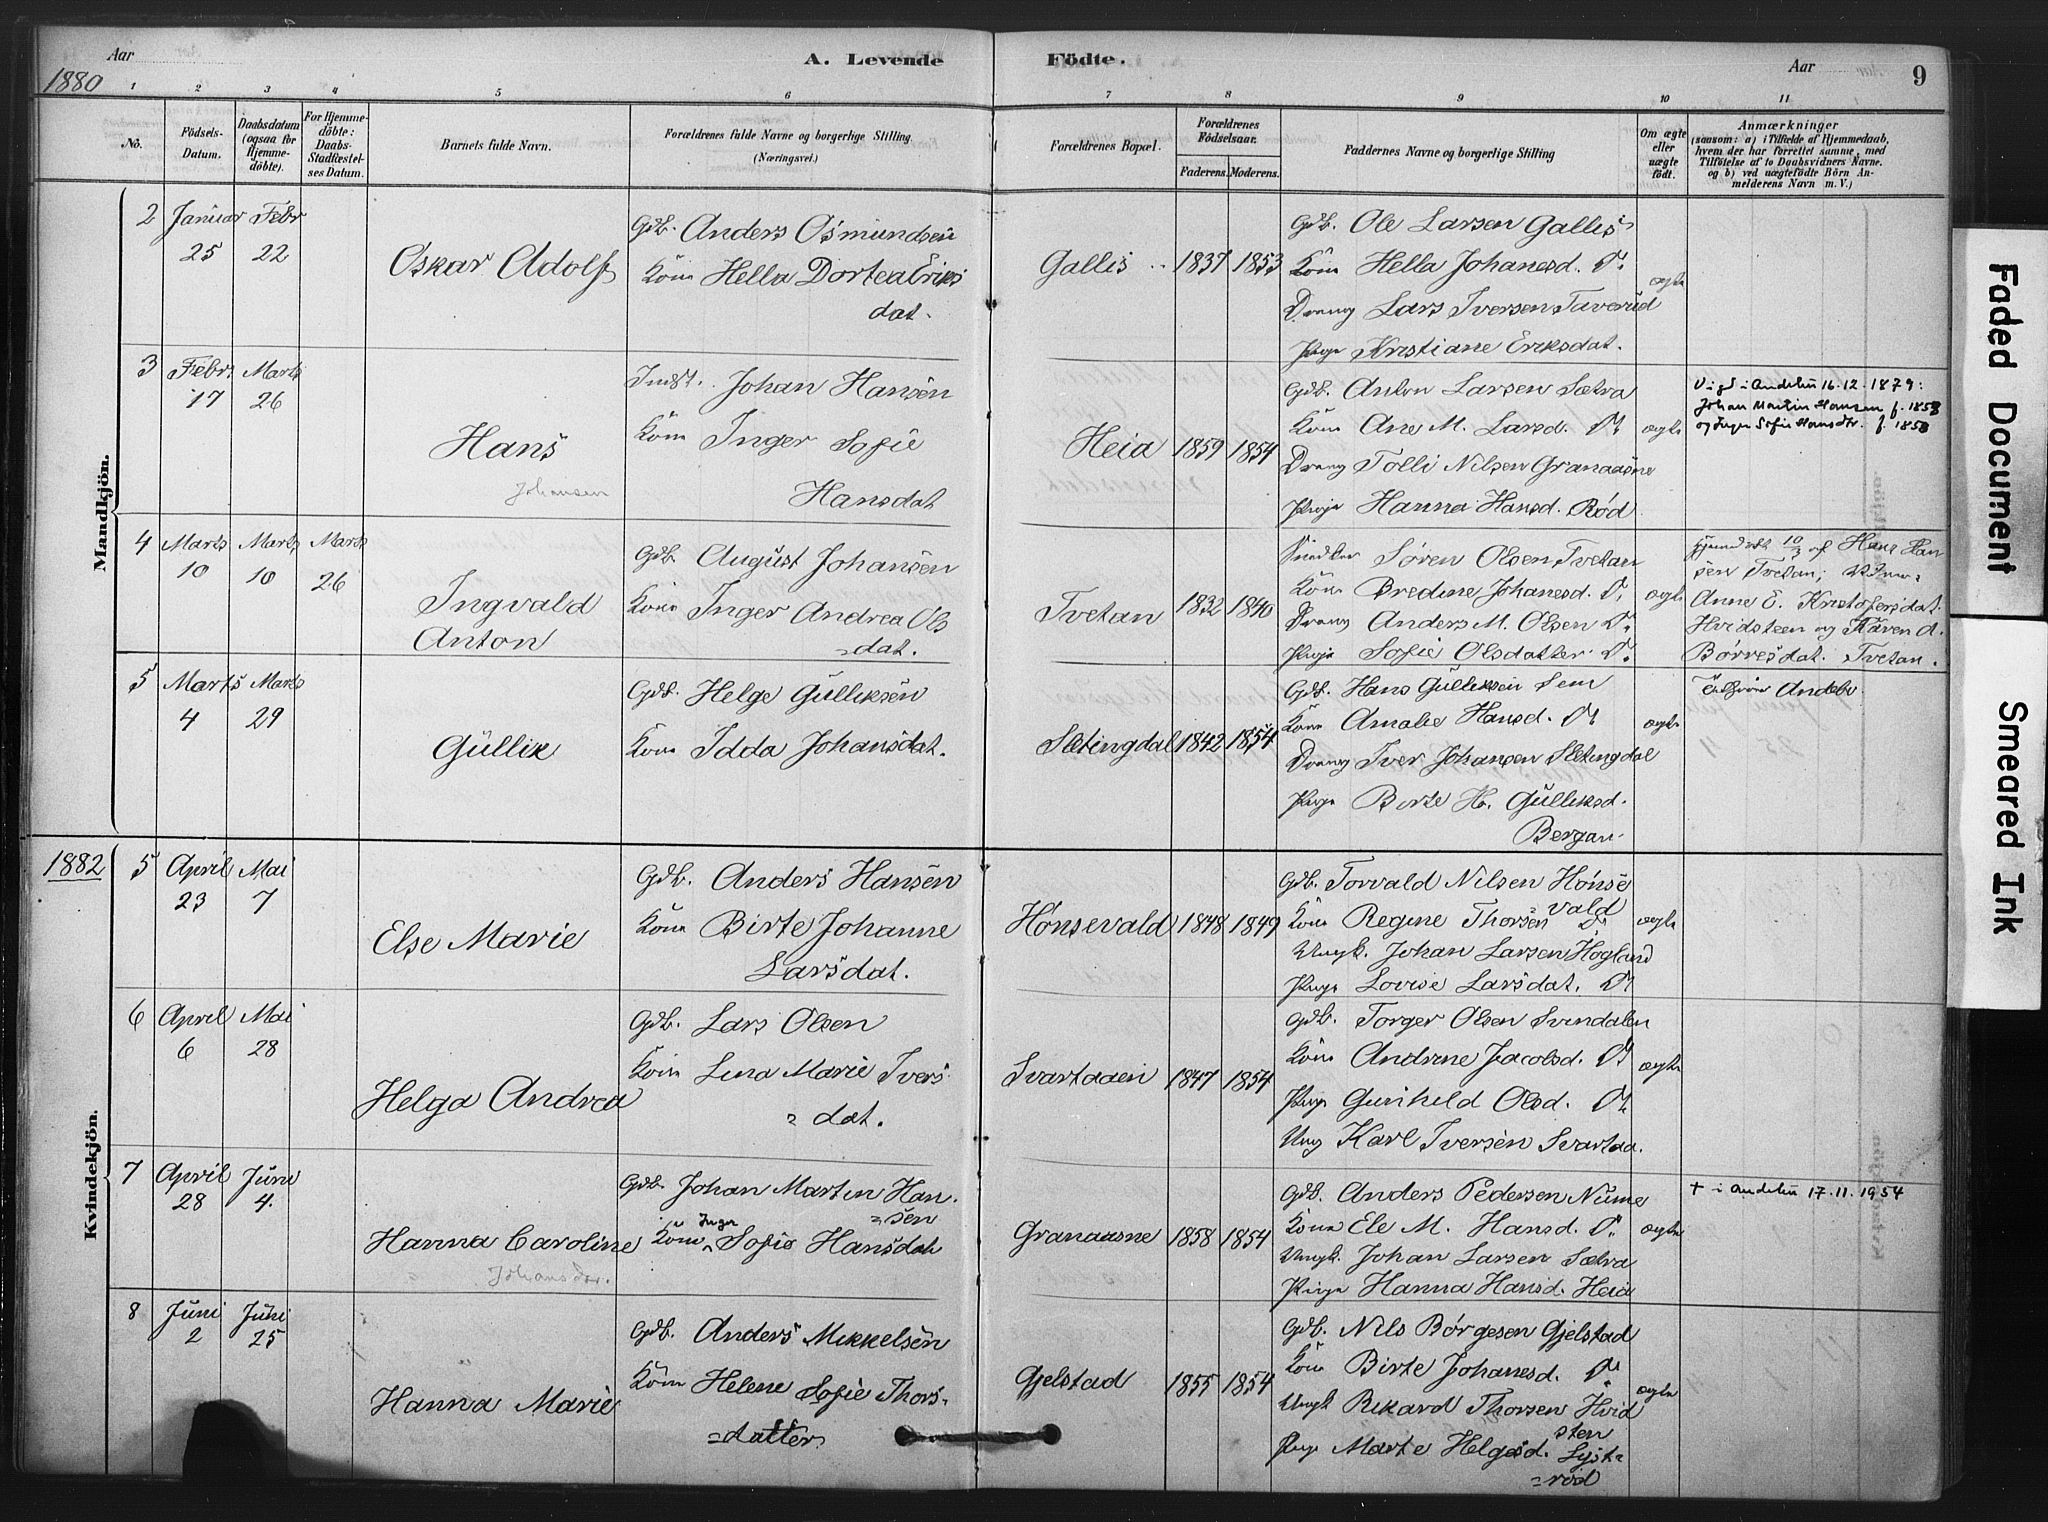 Aar
1880
A. Levende Födte.
Aar
9
1 2 3 4 5 6 7 8 9 10 11
No.
Födsels-Datum.
Daabsdatum (ogsaa for Hjemmedöbte).
For Hjemmedöbte: Daabs-Stadfæstelses Datum.
Barnets fulde Navn.
Forældrenes fulde Navne og borgerlige Stilling.
(Næringsvei.)
Forældrenes Bopæl.
Forældrenes Födselsaar.
Faderens. Moderens.
Faddernes Navne og borgerlige Stilling
Om ægte eller uægte födt.
Anmærkninger
(saasom: a) i Tilfælde af Hjemmedaab, hvem der har forrettet samme, med Tilföielse af to Daabsvidners Navne. og b) ved uægtefödte Börn Anmelderens Navn m. V.)
Mandkjön.
2 Januar 25 Febr 22
Oskar Adolf
Gdb. Anders Osmundsen
Kone Hella Dortea Eriks
dat.
Gallis 1837 1853
Gdb. Ole Larsen Gallis
Kone Hella Johanesd. Do
Dreng Lars Iversen Taverud
Pige Kristiane Eriksdat.
ægte
3 Febr 17 Marts 26
Hans
Johansen
Indst. Johan Hansen
Kone Inger Sofie
Hansdat
Heia 1859 1854
Gdb. Anton Larsen Sætra
Kone Ane M. Larsd. Do
Dreng Tolli Nilsen Granaasne
Pige Hanna Hansd. Rød
ægte
Vigd i Andebu 16.12.1879:
Johan Martin Hansen f. 1858
og Inger Sofie Hansdtr. f. 1853
4 Marts 10 Marts 10 Marts 26
Ingvald
Anton
Gdb August Johansen
Kone Inger Andrea Ols
dat.
Tvetan 1832 1840
Snedker Søren Olsen Tvetan
Kone Bredine Johanesd. Do
Dreng Anders M. Olsen Do
Pige Sofie Olsdatter Do
ægte
hjemdøbt 10/3 af Hans Han
sen Tvetan;
Anne E. Kristofersdat.
Hvidsteen og Maren A.
Børresdat. Tvetan.
5 Marts 4 Marts 29
Gullik
Gdb. Helge Gulliksen
Kone Idda Johansdat.
Sletingdal 1842 1854
Gdb. Hans Gulliksen Sem
Kone Amalie Hansd. Do
Dreng Iver Johansen Sletingdal
Pige Birte H. Gulliksd.
Bergan.
ægte
Andebu.
1882
Kvindekjön.
5 April 23 Mai 7
Else Marie
Gdb. Anders Hansen
Kone Birte Johanne
Larsdat.
Hønsevald 1848 1849
Gdb. Torvald Nilsen Hønse
vald
Kone Regine Thorsen Do
Ungk. Johan Larsen Hogland
Pige Lovise Larsdat. Do
ægte
6 April 6 Mai 28
Helga Andrea
Gdb. Lars Olsen
Kone Lina Marie Ivers
dat.
Svartaaen 1847 1854
Gdb. Torger Olsen Svindalen
Kone Andrine Jacobsd. Do
Pige Gunhild Olsd. Do
Ung Karl Iversen Svartaa.
ægte
7 April 28 Juni 4.
Hanna Caroline
Johansdtr.
Gdb. Johan Martin Han
sen
Kone Inger Sofie Hansdat
Granaasne 1858 1854
Gdb. Anders Pedersen Nume
Kone Ele M. Hansd. Do
Ungk. Johan Larsen Sætra
Pige Hanna Hansd. Heia
ægte
† i Andebu 17.11.1954
8 Juni 2 Juni 25
Hanna Marie
Gdb. Anders Mikkelsen
Kone Helene Sofie Thors
datter
Gjelstad 1855 1854
Gdb. Nils Børgesen Gjelstad
Kone Birte Johanesd. Do
Ungk Rikard Thorsen Hvid
sten
Pige Marte Helgesd. Lyst
rød
ægte
Faded Document
Smeared Ink